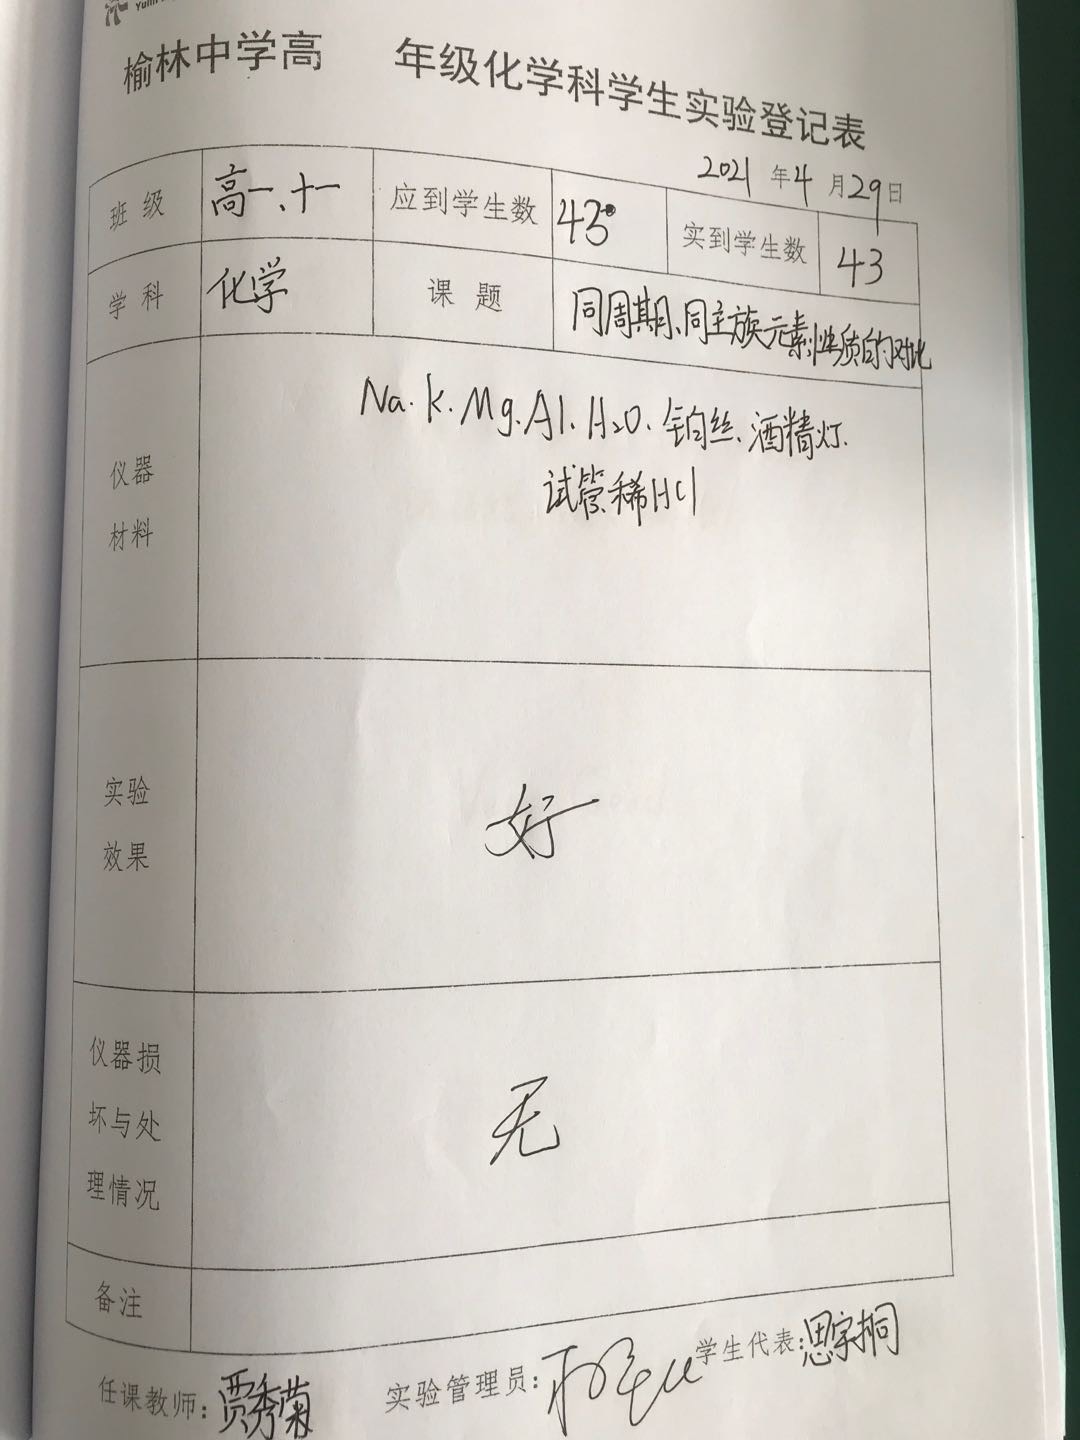 榆林中学高 年级化学科学生实验登记表
2021 年 4 月 29 日
班 级 高一、十一 应到学生数 43 实到学生数 43
学 科 化学 课 题 同周期、同主族元素性质的对比
仪器
材料
Na.K.Mg.Al.H₂O.铂丝.酒精灯.
试管稀HCl
实验
效果
好
仪器损
坏与处
理情况
无
备注
任课教师：贾秀菊 实验管理员： 学生代表：思宇桐